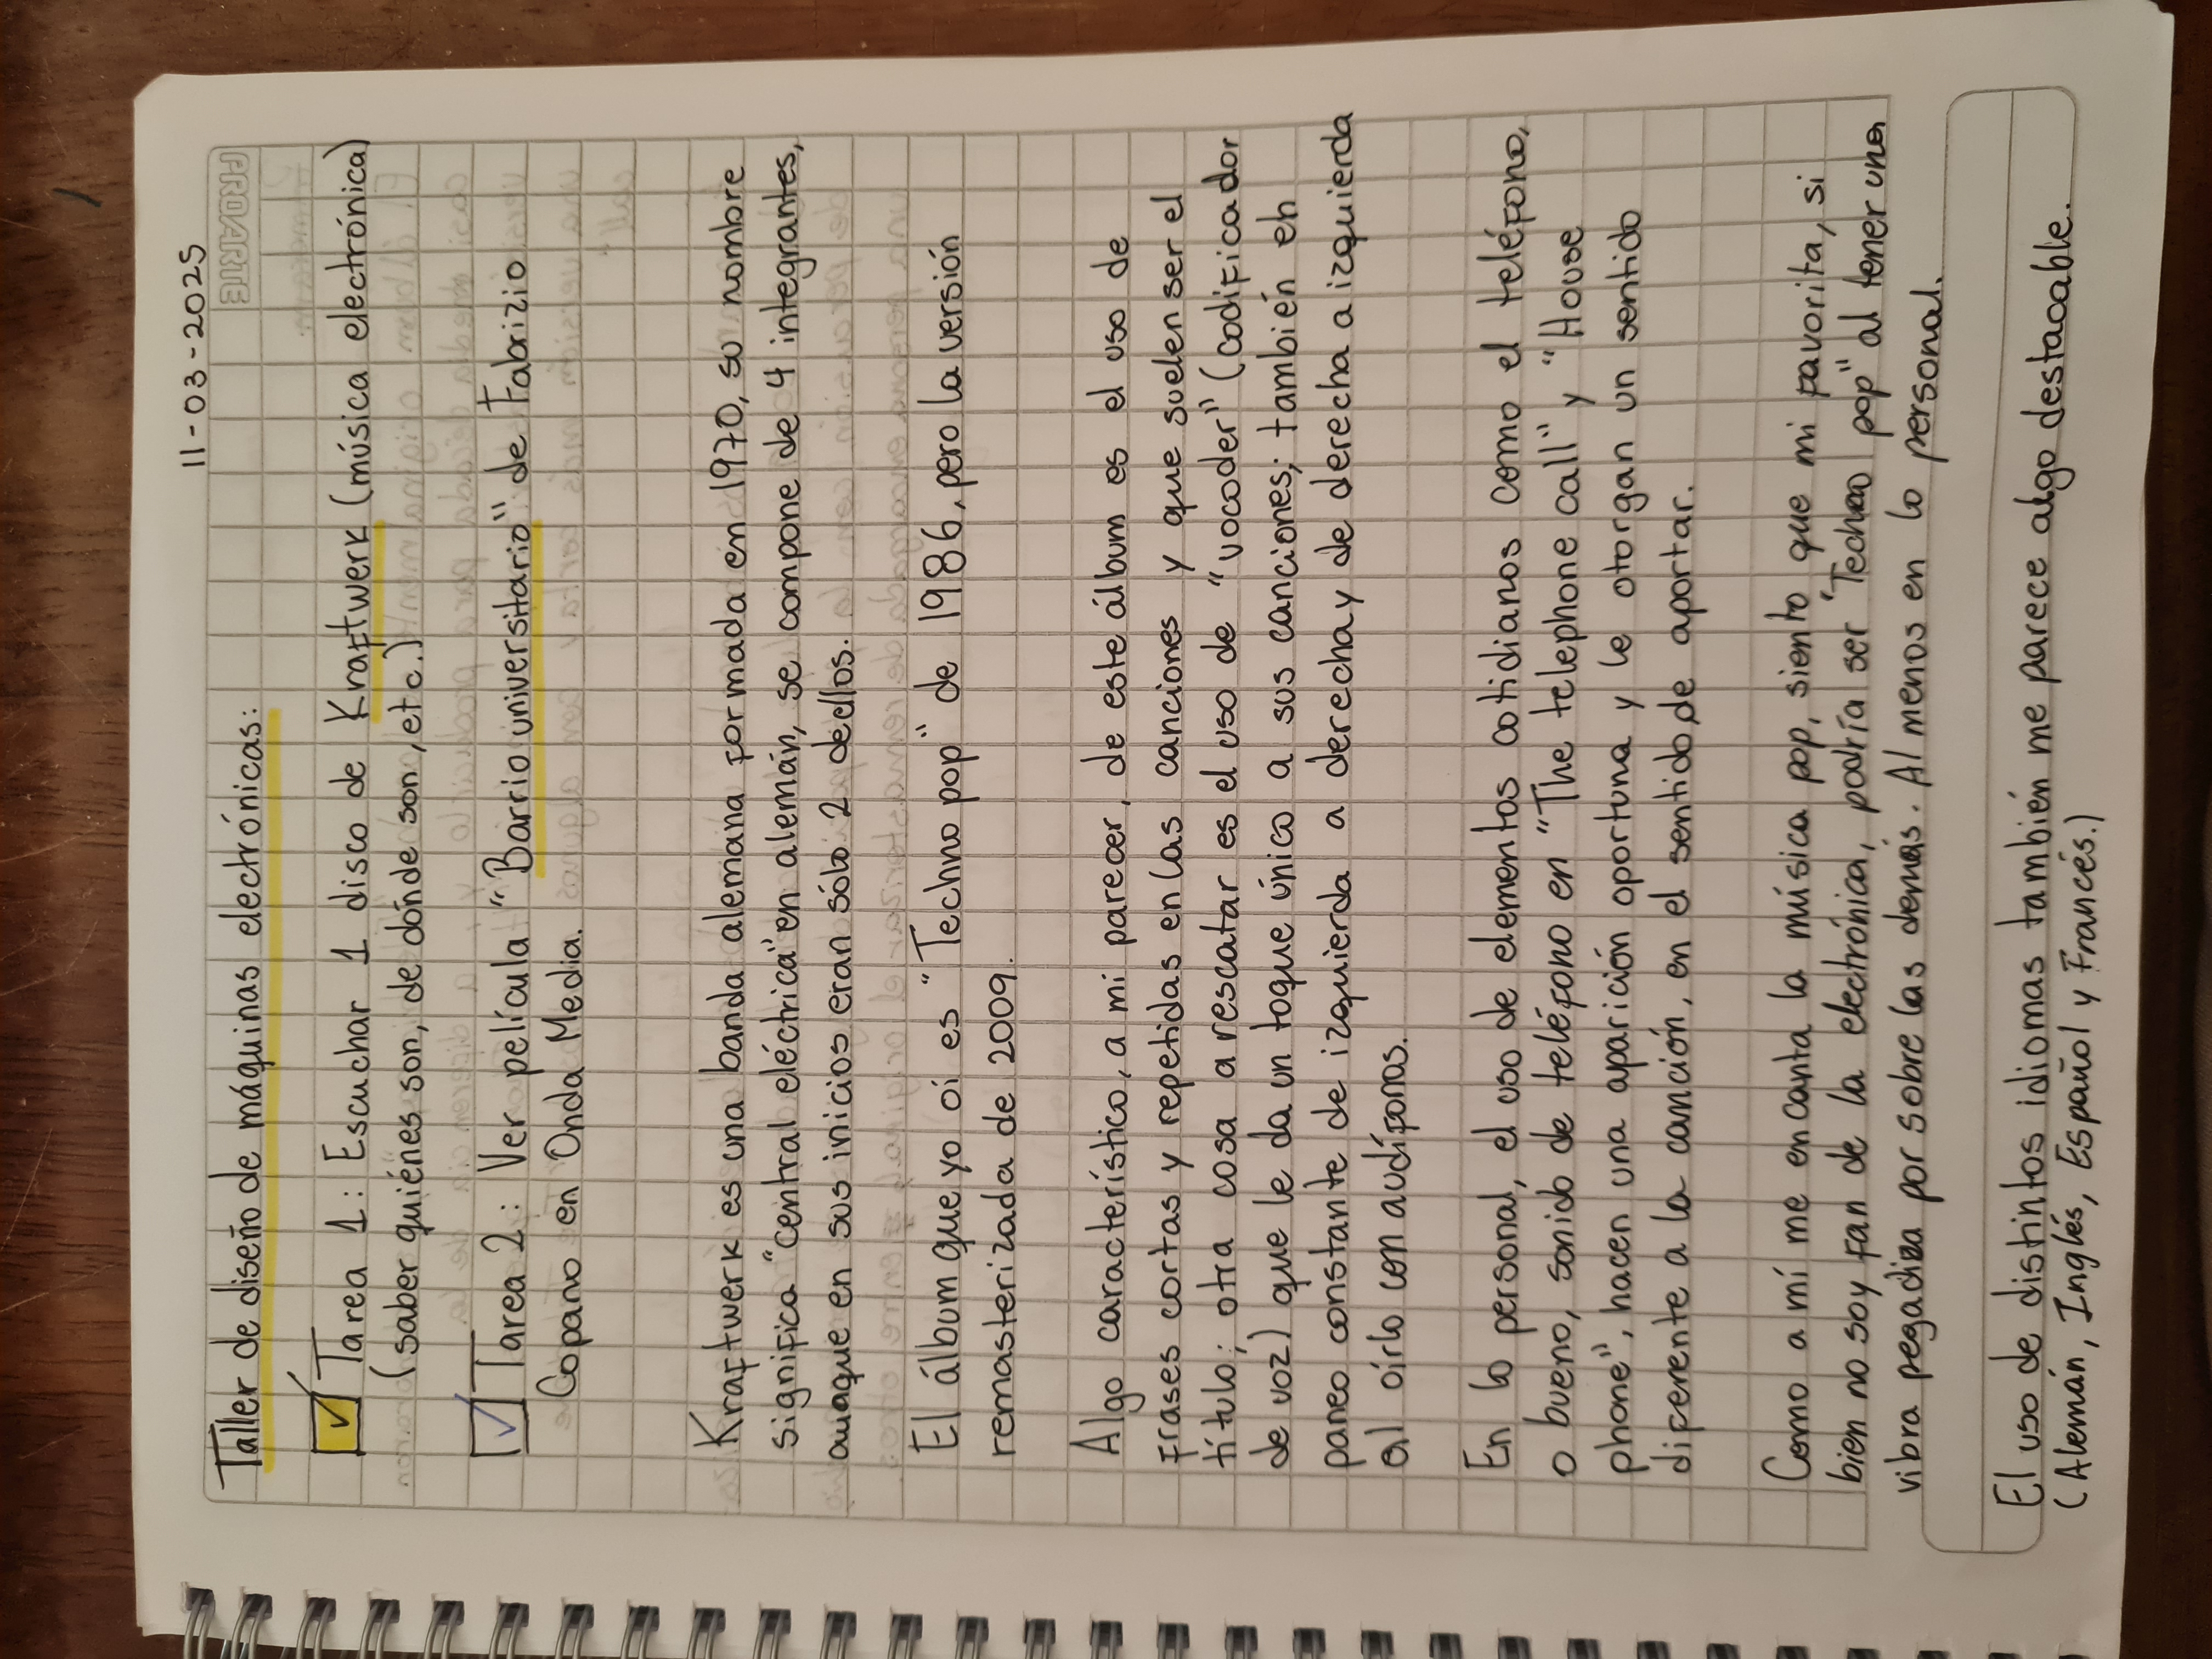 11-03-2025
PROARTE
Taller de diseño de máquinas electrónicas:
Tarea 1: Escuchar 1 disco de Kraftwerk (música electrónica)
(saber quiénes son, de dónde son, etc.)
Tarea 2: Ver película "Barrio universitario" de Fabrizio
Copano en Onda Media.
Kraftwerk es una banda alemana formada en 1970, su nombre
significa "central eléctrica" en alemán, se compone de 4 integrantes,
aunque en sus inicios eran sólo 2 de ellos.
El álbum que yo oí es "Techno pop" de 1986, pero la versión
remasterizada de 2009.
Algo característico, a mi parecer, de este álbum es el uso de
frases cortas y repetidas en las canciones y que suelen ser el
título; otra cosa a rescatar es el uso de "vocoder" (codificador
de voz) que le da un toque único a sus canciones; también eh
paneo constante de izquierda a derecha y de derecha a izquierda
al oírlo con audífonos.
En lo personal, el uso de elementos cotidianos como el teléfono,
o bueno, sonido de teléfono en "The telephone call" y "House
phone", hacen una aparición oportuna y le otorgan un sentido
diferente a la canción, en el sentido de aportar.
Como a mí me encanta la música pop, siento que mi favorita, si
bien no soy fan de la electrónica, podría ser "Techno pop" al tener una
vibra pegadiza por sobre las demás. Al menos en lo personal.
El uso de distintos idiomas también me parece algo destacable.
(Alemán, Inglés, Español y Francés.)